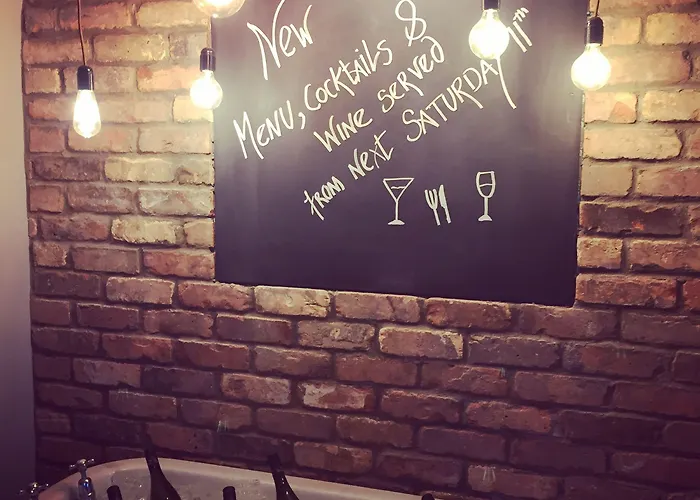 New
MENU, COCKTAILS &
WINE SERVED
FROM NEXT SATURDAY 11TH